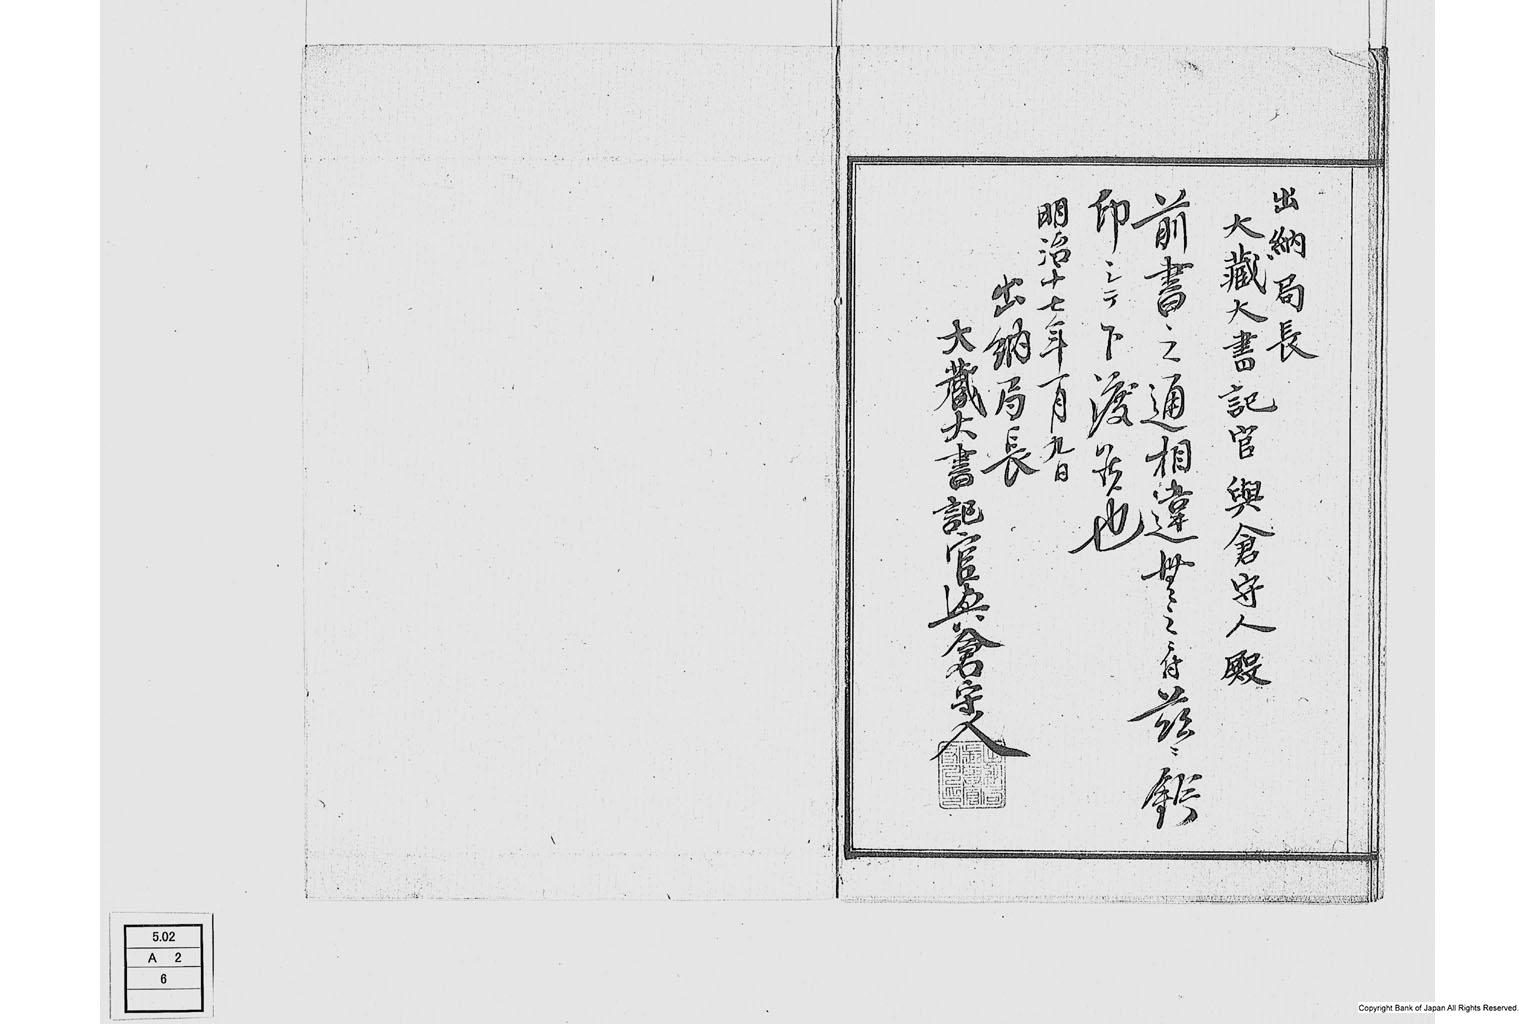 出納局長
大藏大書記官與倉守人殿
前書之通相違無之ニ付茲ニ鈐
印シテ下渡也
明治十七年一月九日
出納局長
大藏大書記官與倉守人
5.02
A 2
6
Copyright Bank of Japan All Rights Reserved.